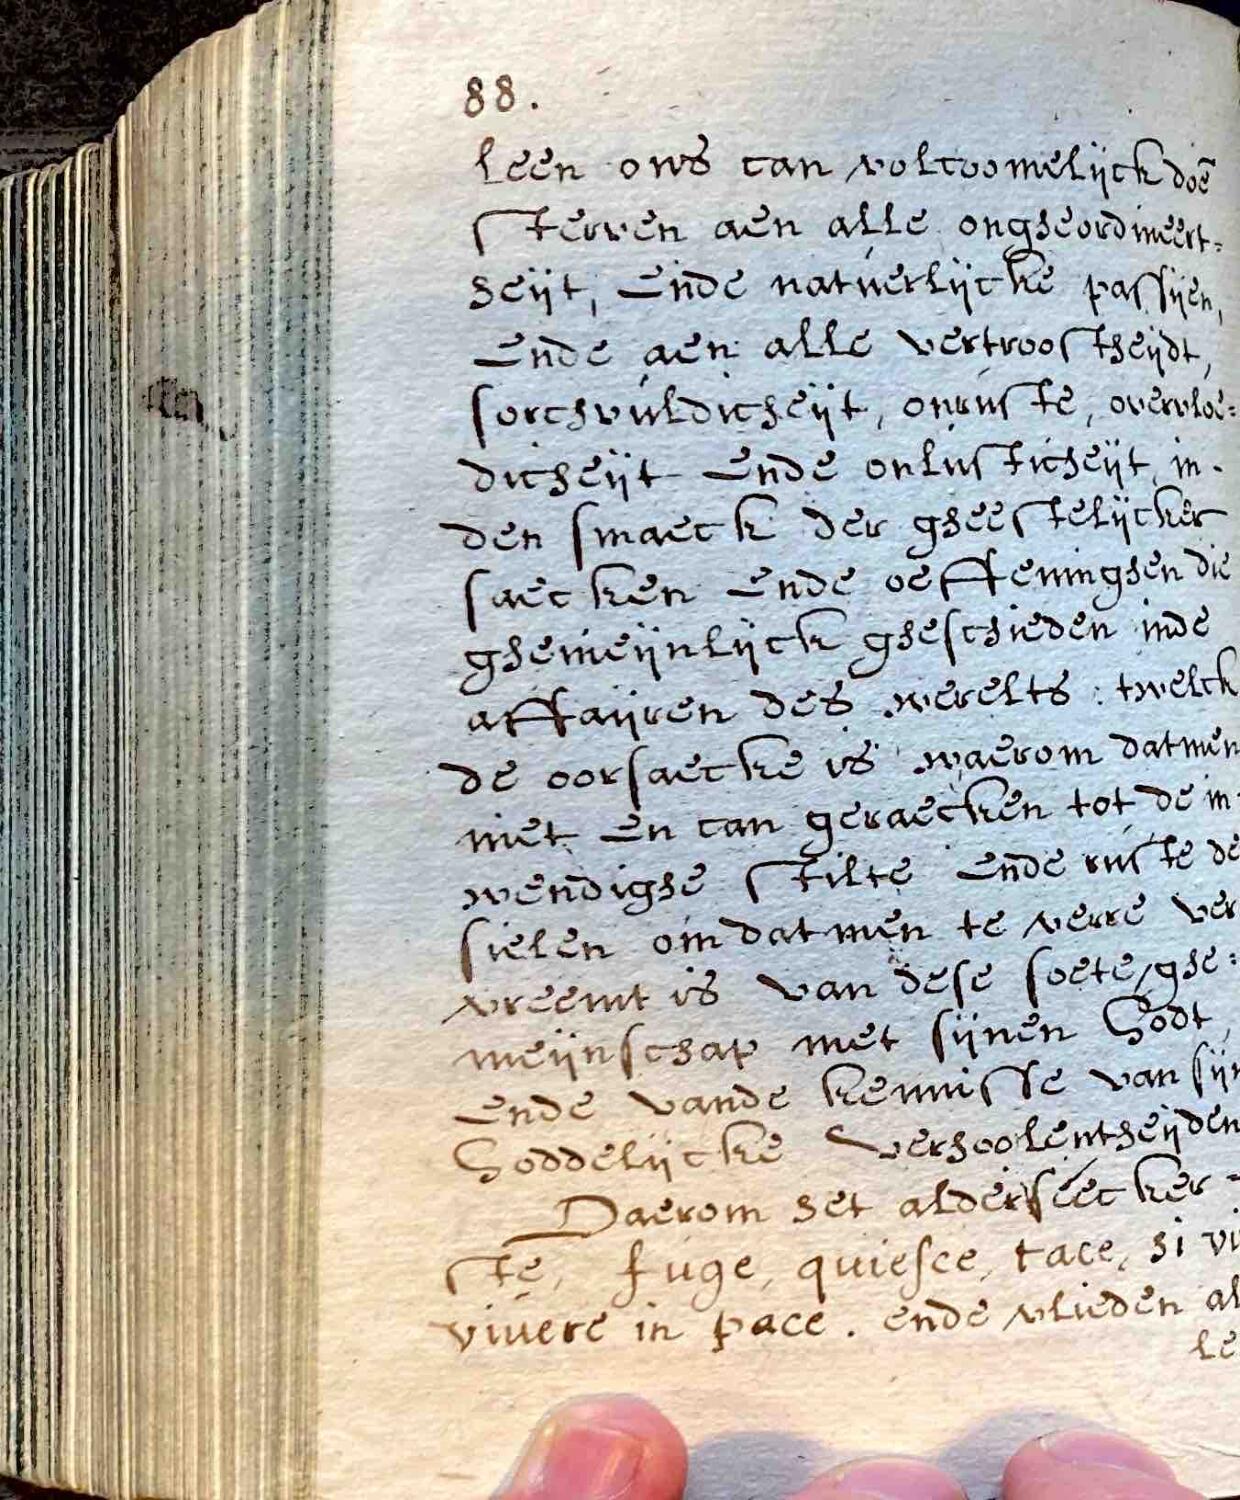 88.
leen ons can volcoomelijck doē
sterven aen alle ongheordineert=
heijt, ende natuerlijcke passijen,
ende aen alle vertroostheijdt,
sorchvuldicheijt, onruste, overvloe=
dicheijt ende onlusticheijt in-
den smaeck der gheestelijcker
saecken ende oeffeninghen die
ghemeijnlijck gheschieden inde
affaijren des werelts: twelck
de oorsaecke is waerom datmen
niet en can geraecken tot de in-
wendighe stilte ende ruste de
sielen omdatmen te verre ver
vreemt is van dese soete ghe=
meijnschap met sijnen Godt,
ende vande kennisse van sijn
Goddelijcke verhoolentheijden
Daerom het alderseecker=
ste, fuge, quiesce, tace, si vi
vivere in pace. ende vlieden al
le